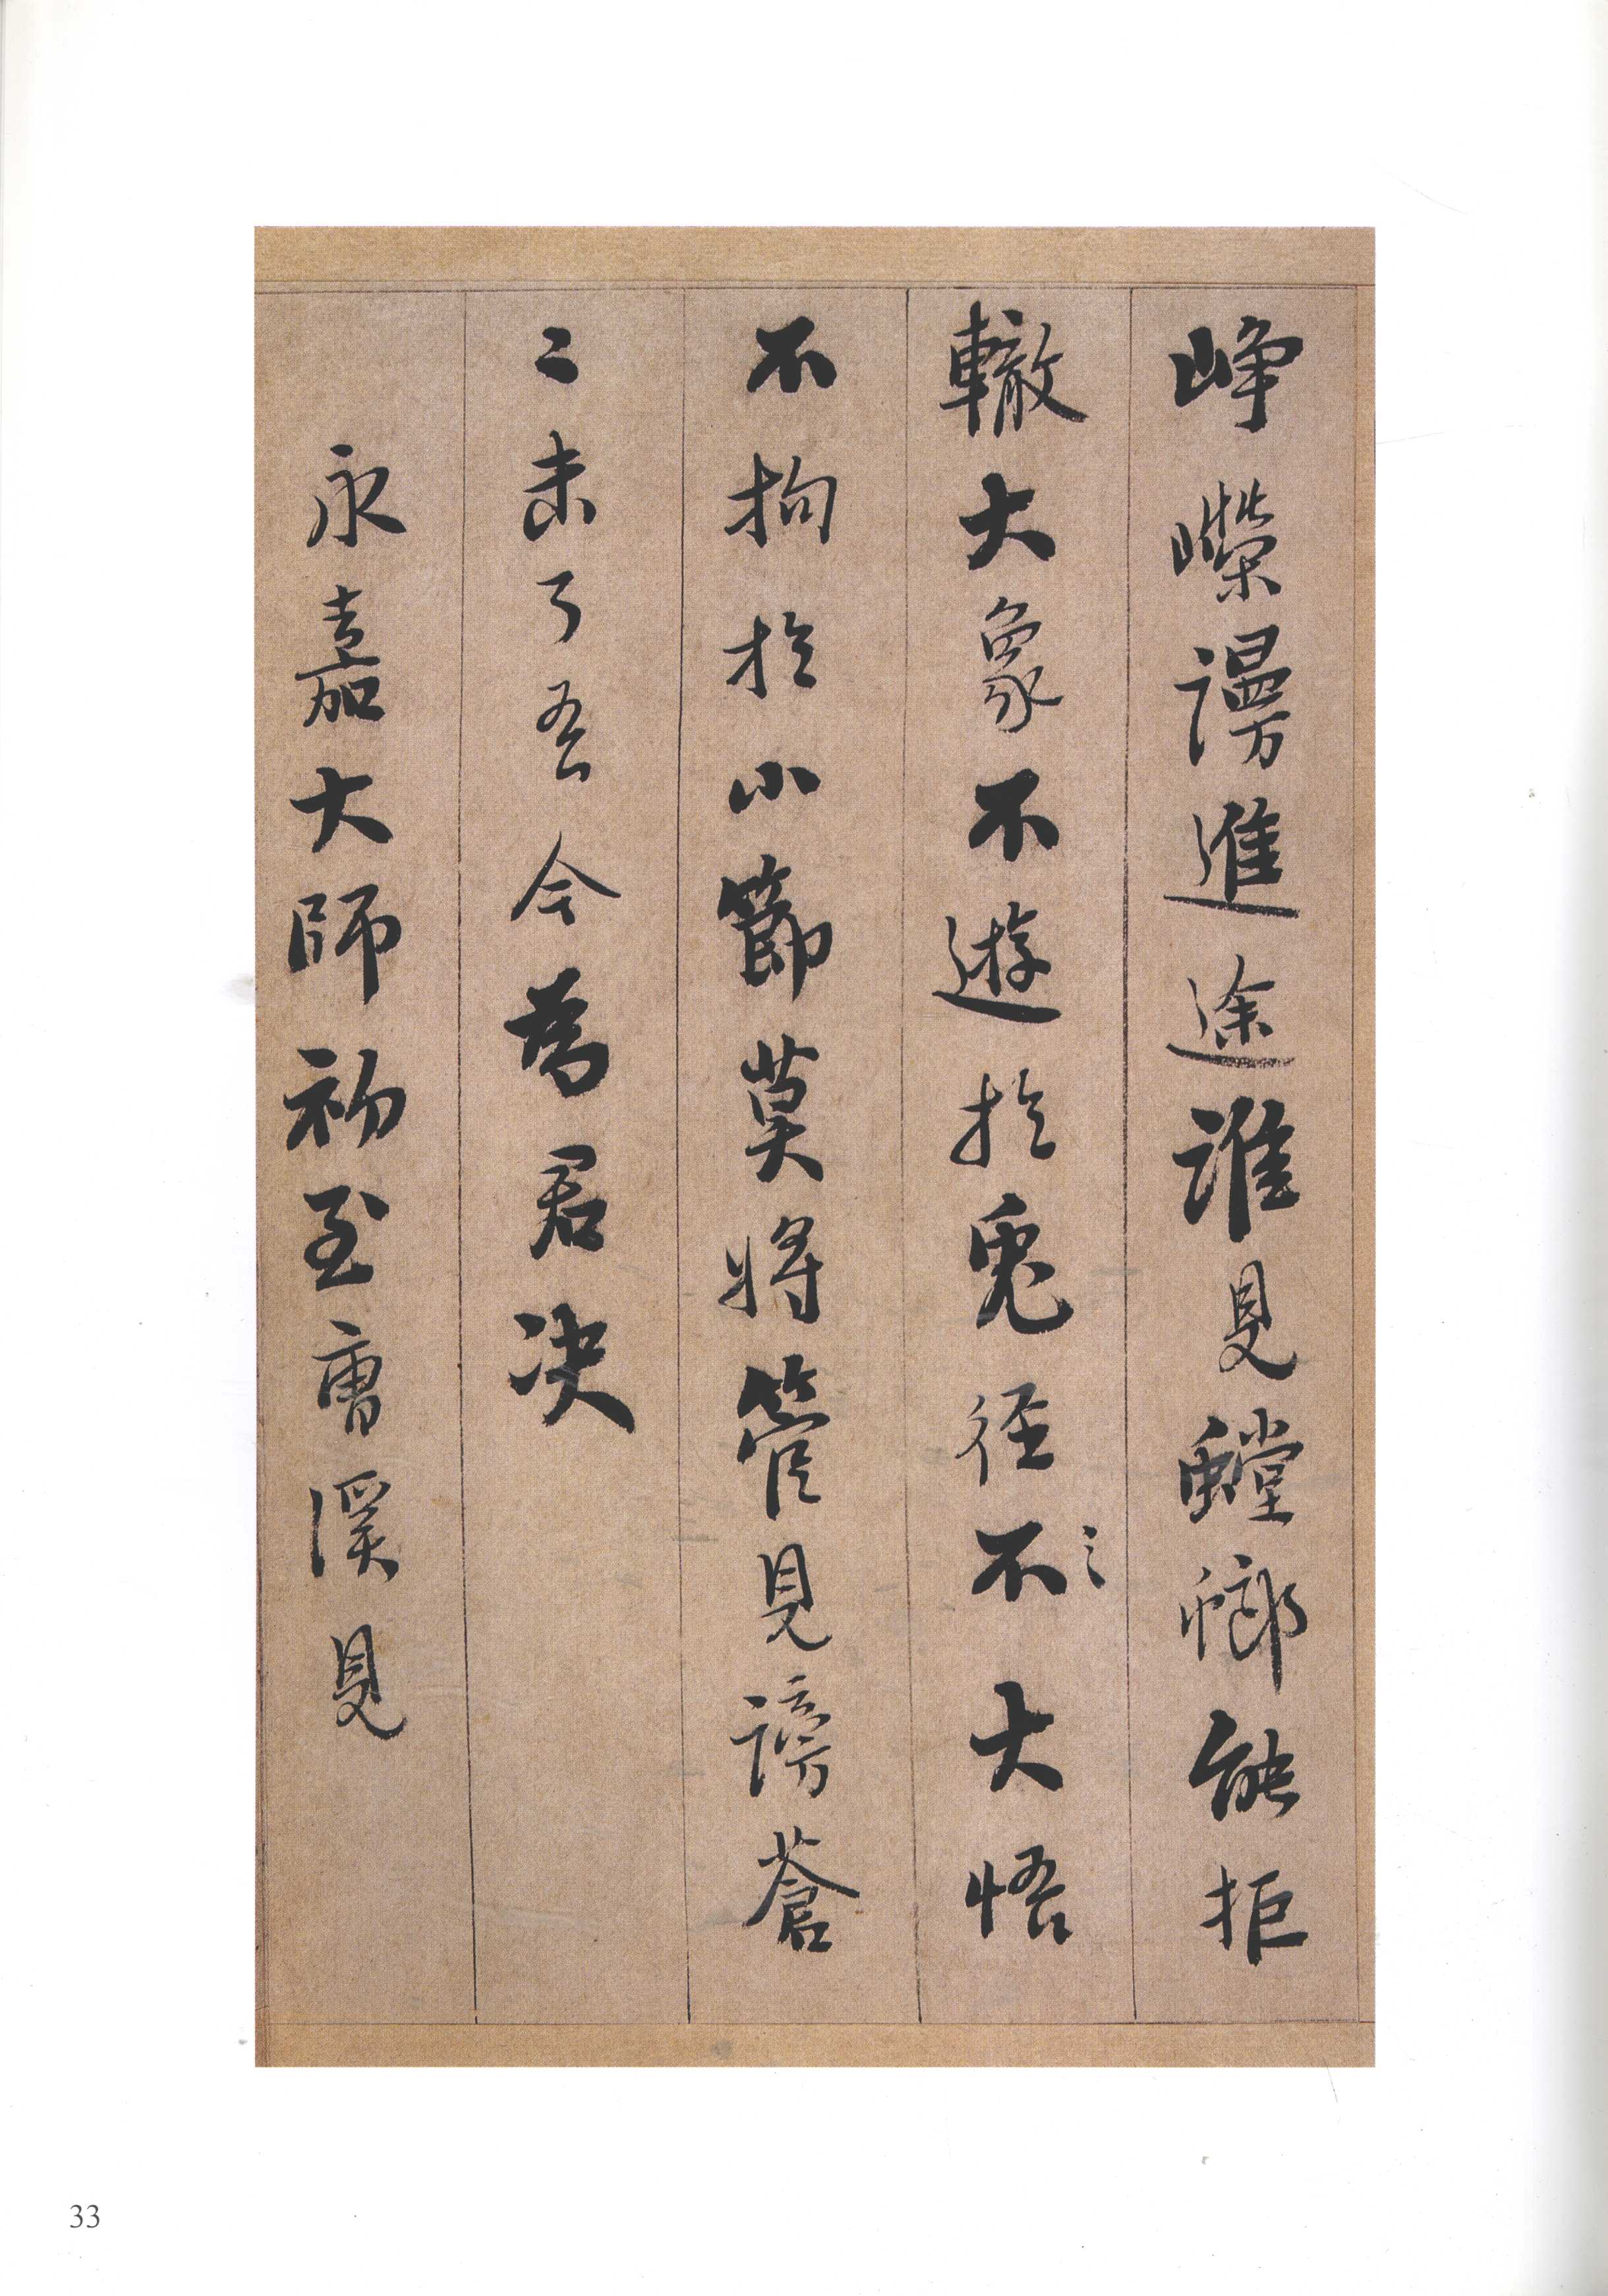 崢嶸謾進途誰見螳螂能拒
轍大象不遊於兔径不大悟
不拘於小節莫將管見謗蒼
〻未了吾今為君决
永嘉大師初至曹溪見
33